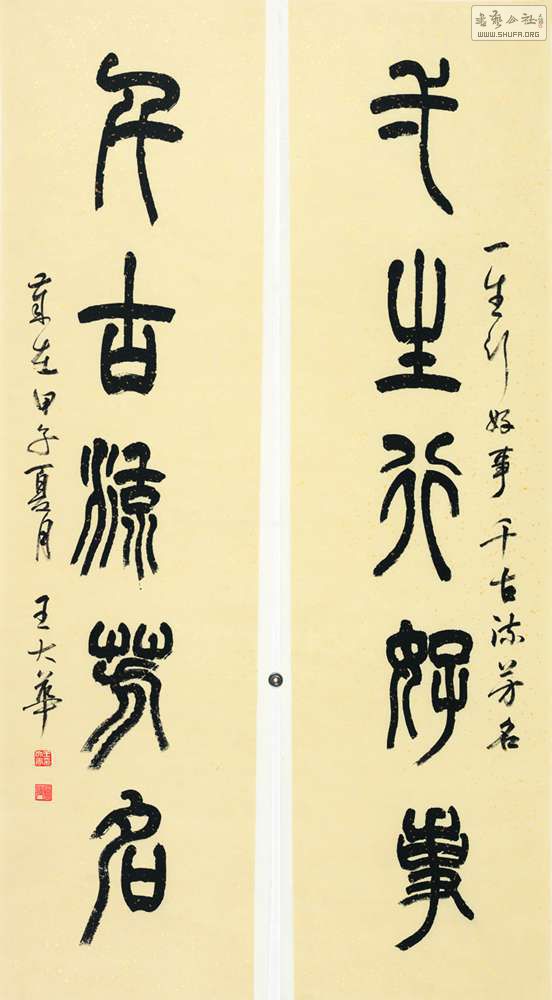 書藝公社
WWW.SHUFA.ORG
一生行好事 千古流芳名
弌生行好事
千古流芳名
歲在甲子夏月 王大華